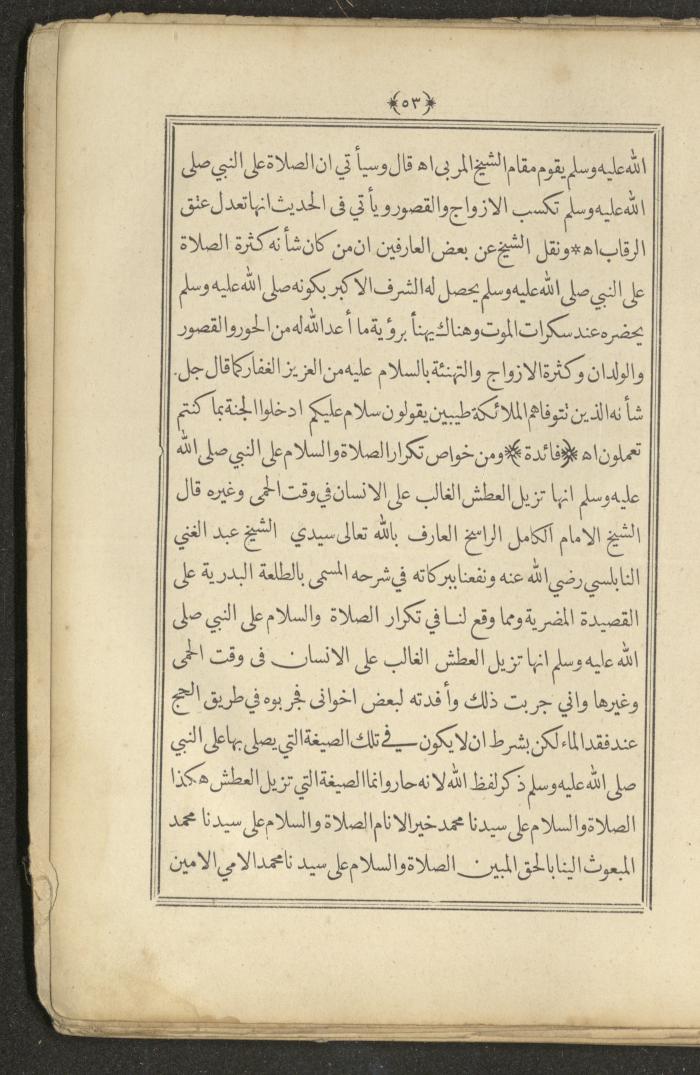 ﴿٥٣﴾
الله عليه وسلم يقوم مقام الشيخ المربى اه قال وسيأتي ان الصلاة على النبي صلى
الله عليه وسلم تكسب الازواج والقصور ويأتي فى الحديث انها تعدل عتق
الرقاب اه * ونقل الشيخ عن بعض العارفين ان من كان شأنه كثرة الصلاة
على النبي صلى الله عليه وسلم يحصل له الشرف الاكبر بكونه صلى الله عليه وسلم
يحضره عند سكرات الموت وهناك يهنأ برؤية ما أعد الله له من الحور والقصور
والولدان وكثرة الازواج والتهنئة بالسلام عليه من العزيز الغفار كما قال جل
شأنه الذين تتوفاهم الملائكة طيبين يقولون سلام عليكم ادخلوا الجنة بما كنتم
تعملون اه ﴿فائدة﴾ ومن خواص تكرار الصلاة والسلام على النبي صلى الله
عليه وسلم انها تزيل العطش الغالب على الانسان في وقت الحمى وغيره قال
الشيخ الامام الكامل الراسخ العارف بالله تعالى سيدي الشيخ عبد الغني
النابلسي رضي الله عنه ونفعنا ببركاته في شرحه المسمى بالطلعة البدرية على
القصيدة المضرية ومما وقع لنا في تكرار الصلاة والسلام على النبي صلى
الله عليه وسلم انها تزيل العطش الغالب على الانسان فى وقت الحمى
وغيرها واني جربت ذلك وأفدته لبعض اخوانى فجربوه في طريق الحج
عند فقد الماء لكن بشرط ان لا يكون في تلك الصيغة التي يصلى بها على النبي
صلى الله عليه وسلم ذكر لفظ الله لانه حار وانما الصيغة التي تزيل العطش هكذا
الصلاة والسلام على سيدنا محمد خير الانام الصلاة والسلام على سيدنا محمد
المبعوث الينا بالحق المبين الصلاة والسلام على سيدنا محمد الامي الامين